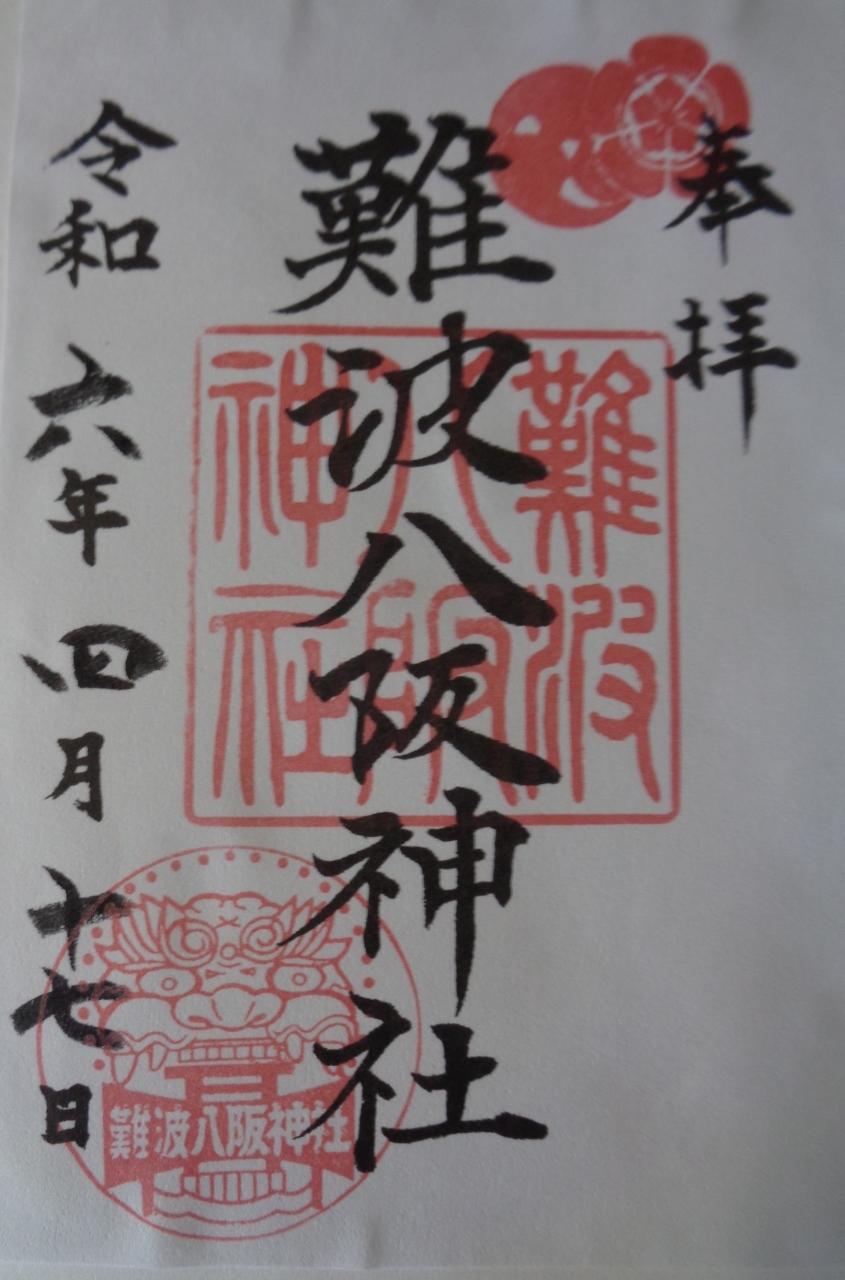 奉拝
難波八阪神社
難波八阪神社
令和六年四月十七日
難波八阪神社